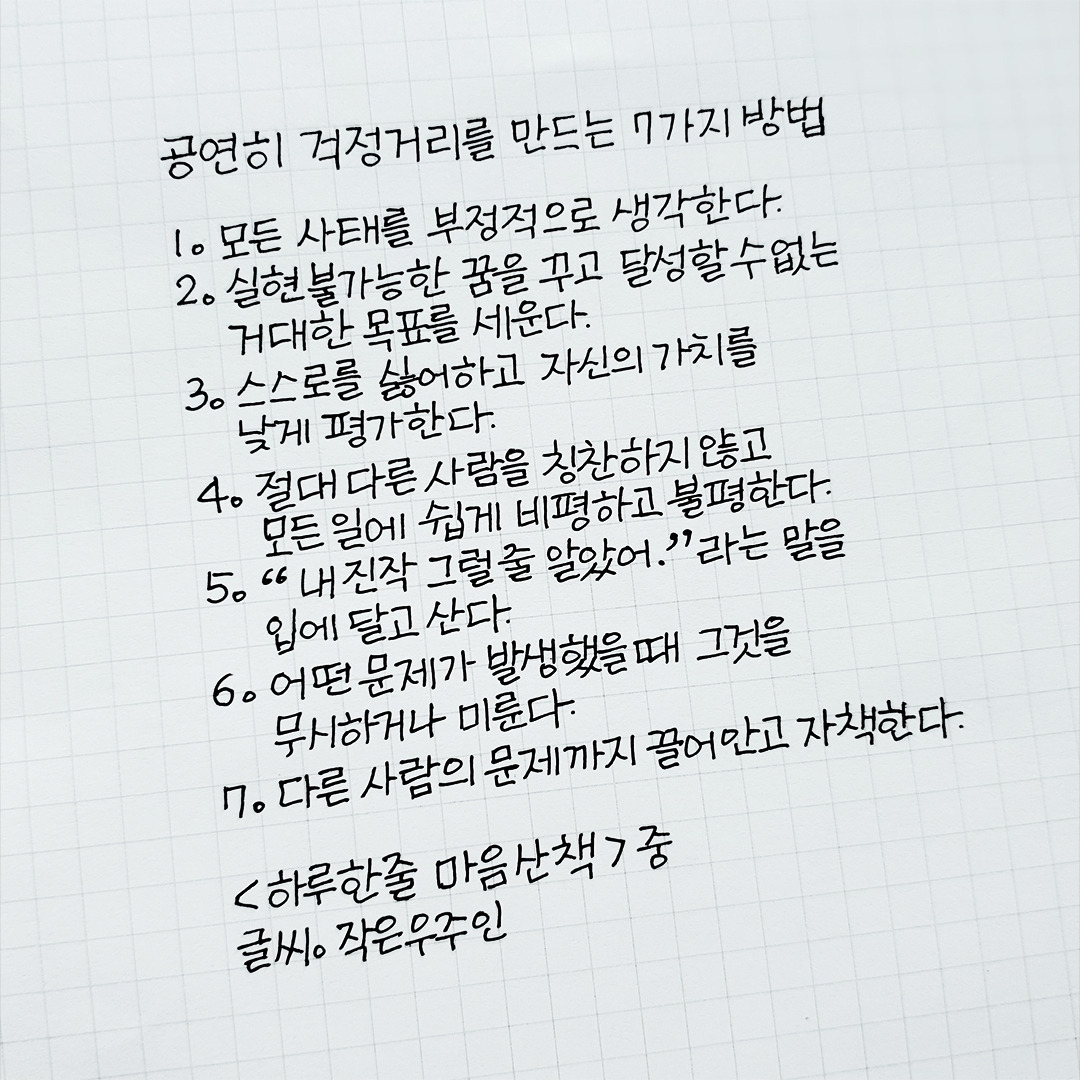 공연히 걱정거리를 만드는 7가지 방법
1. 모든 사태를 부정적으로 생각한다.
2. 실현불가능한 꿈을 꾸고 달성할 수 없는
거대한 목표를 세운다.
3. 스스로를 싫어하고 자신의 가치를
낮게 평가한다.
4. 절대 다른 사람을 칭찬하지 않고
모든 일에 쉽게 비평하고 불평한다.
5. “내 진작 그럴 줄 알았어.”라는 말을
입에 달고 산다.
6. 어떤 문제가 발생했을 때 그것을
무시하거나 미룬다.
7. 다른 사람의 문제까지 끌어안고 자책한다.
<하루한줄 마음산책> 중
글씨. 작은우주인